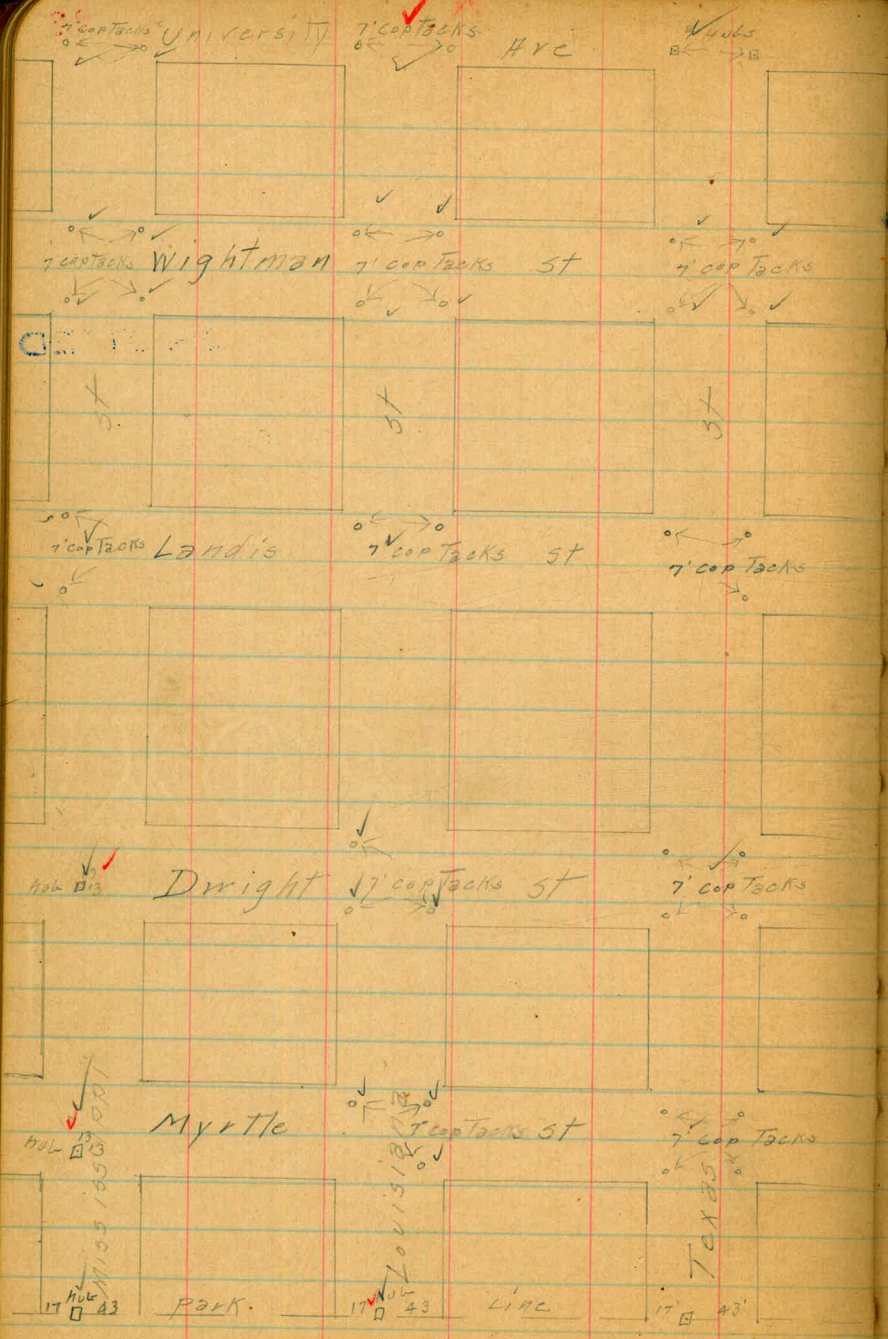 7' cop Tacks University 7' cop Tacks Ave Hubs
7' cop Tacks Wightman 7' cop Tacks St 7' cop Tacks
St St St
7' cop Tacks Landis 7' cop Tacks St 7' cop Tacks
hub 13 Dwight 7' cop Tacks St 7' cop Tacks
hub 13 13 Myrtle 7' cop Tacks St 7' cop Tacks
Mississippi Louisiana Texas
17 hub 43 Park. 17 hub 43 Line 17' 43'